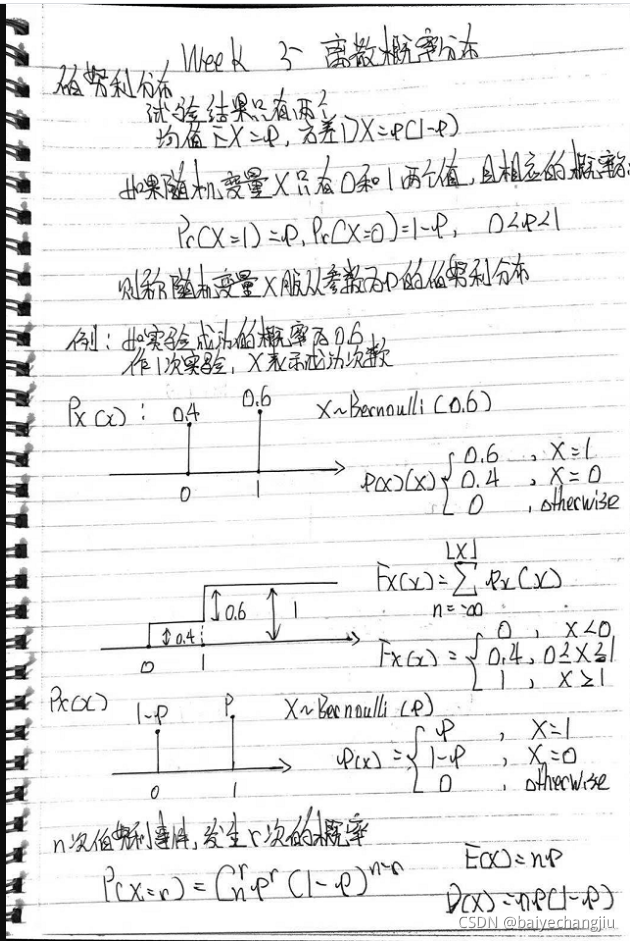 Week 3 离散概率分布
伯努利分布
试验结果只有两个
均值EX=p, 方差DX=p(1-p)
如果随机变量X只有0和1两个值, 且相应的概率为:
Pr(X=1)=p, Pr(X=0)=1-p, 0<p<1
则称随机变量X服从参数为p的伯努利分布
例: 如实验成功的概率为0.6
作1次实验, X表示成功次数
Px(x): 0.4 0.6 X~Bernoulli(0.6)
0 1
p(x)(x) { 0.6, X=1
0.4, X=0
0, otherwise
Fx(x)=∑ Px(x)
⌊X⌋
n=-∞
0.4 0.6 1
0 1
Fx(x)= { 0, X<0
0.4, 0≤X≤1
1, X≥1
Px(x) 1-p p X~Bernoulli(p)
0 1
p(x)= { p, X=1
1-p, X=0
0, otherwise
n次伯努利事件, 发生r次的概率
P(X=r)=C_n^r p^r (1-p)^{n-r}
E(x)=np
D(x)=np(1-p)
CSDN @baiyechangjiu